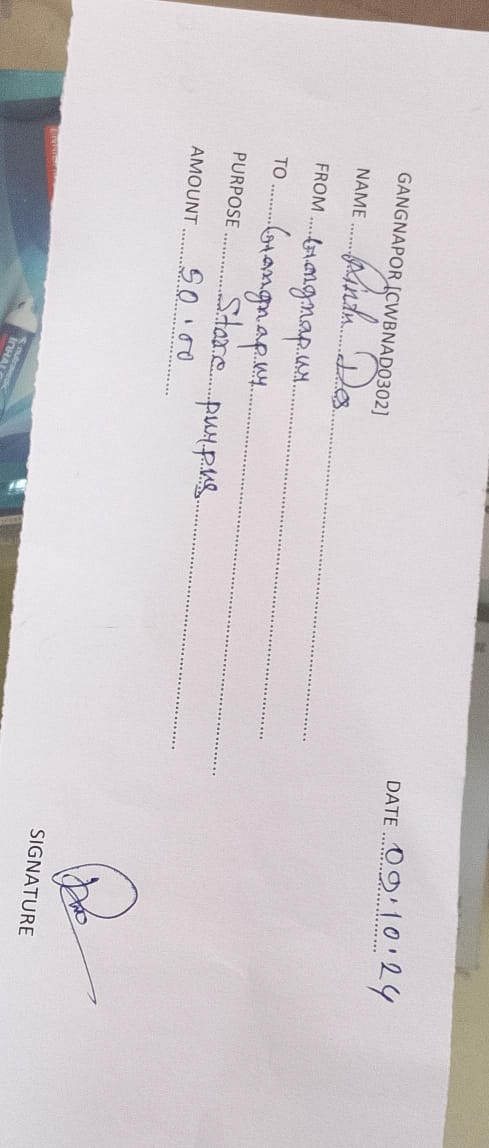 GANGNAPOR [CWBNAD0302]
DATE 09.10.24
NAME Pintu Das
FROM Gangnapur
TO Gangnapur
PURPOSE Store purpus
AMOUNT 50.00
SIGNATURE